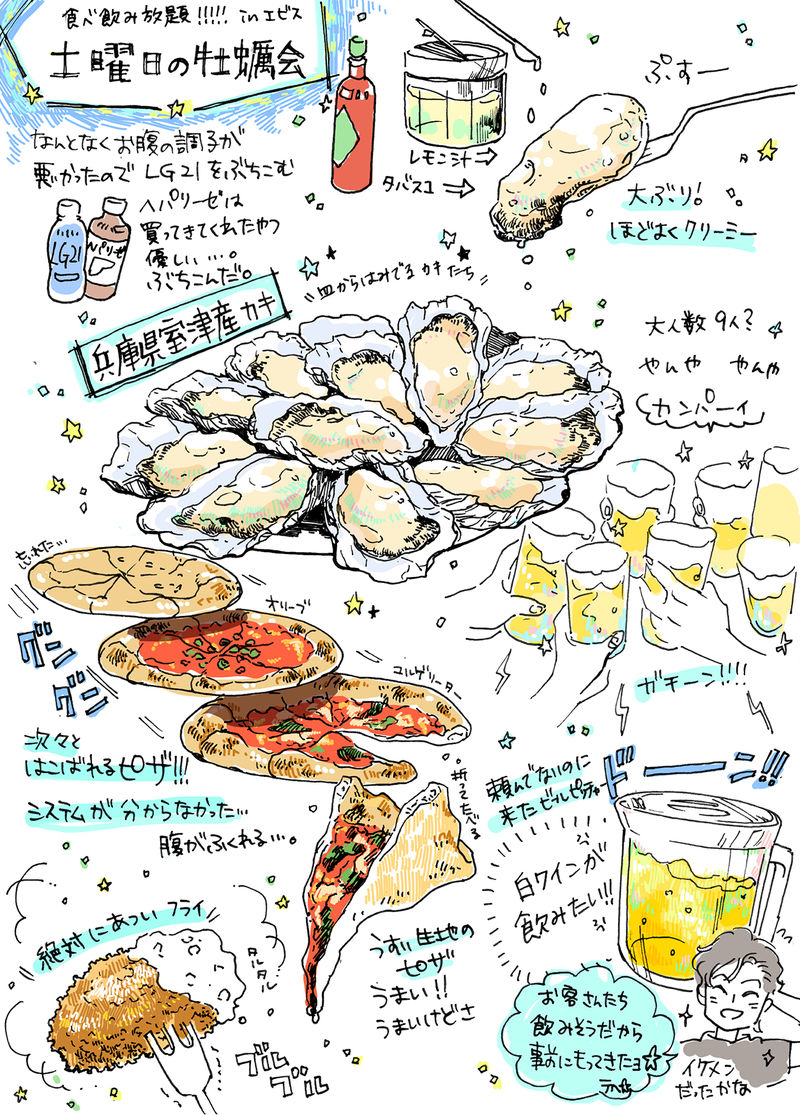 食べ飲み放題!!!!! inエビス
土曜日の牡蠣会
なんとなくお腹の調子が
悪かったので LG21をぶちこむ
ヘパリーゼは
買ってきてくれたやつ
優しい…。
ぶちこんだ。
LG21
ヘパリーゼ
レモン汁⇒
タバスコ ⇒
ぷすー
大ぶり!
ほどよくクリーミー
皿からはみでるカキたち
兵庫県室津産カキ
大人数9人?
やんや やんや
カンパーイ
ガチーン!!!!
忘れた…
オリーブ
マルゲリーター
グングン
次々と
はこばれるピザ!!!
システムが分からなかった…
腹がふくれる…。
折ってたべる
うすい生地の
ピザ
うまい!!
うまいけどさ
頼んでないのに
来たビールピッチャー
ドーーン!!
白ワインが
飲みたい!!
お客さんたち
飲みそうだから
事前にもってきたヨ☆
イケメン
だったかな
絶対にあついフライ
タルタル
ブルブル